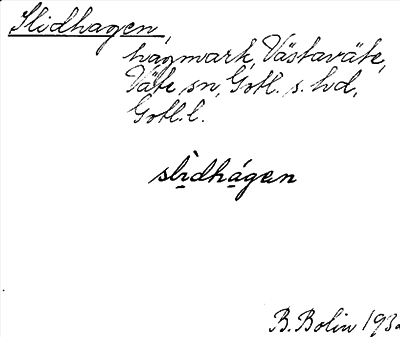 Slidhagen,
hagmark, Västaväte,
Väte sn, Gotl. s. hd,
Gotl. l.
slìdhágen
B. Bolin 193